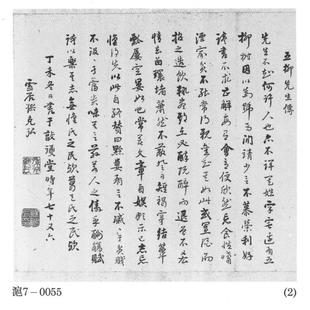 五柳先生傳
先生不知何許人也亦不詳其姓字宅邊有五
柳樹因以為號焉閑靖少言不慕榮利好
讀書不求甚解每有會意便欣然忘食性嗜
酒家貧不能常得親舊知其如此或置酒而
招之造飲輒盡期在必醉既醉而退曾不吝
情去留環堵蕭然不蔽風日短褐穿結簞
瓢屢空晏如也常著文章自娛頗示己志忘
懷得失以此自終贊曰黔婁有言不戚戚于貧賤
不汲汲于富貴味其言茲若人之儔乎酣觴賦
詩以樂其志無懷氏之民歟葛天氏之民歟
丁未冬日書于堂時年七十又六
雪居孫克弘
滬7-0055
(2)